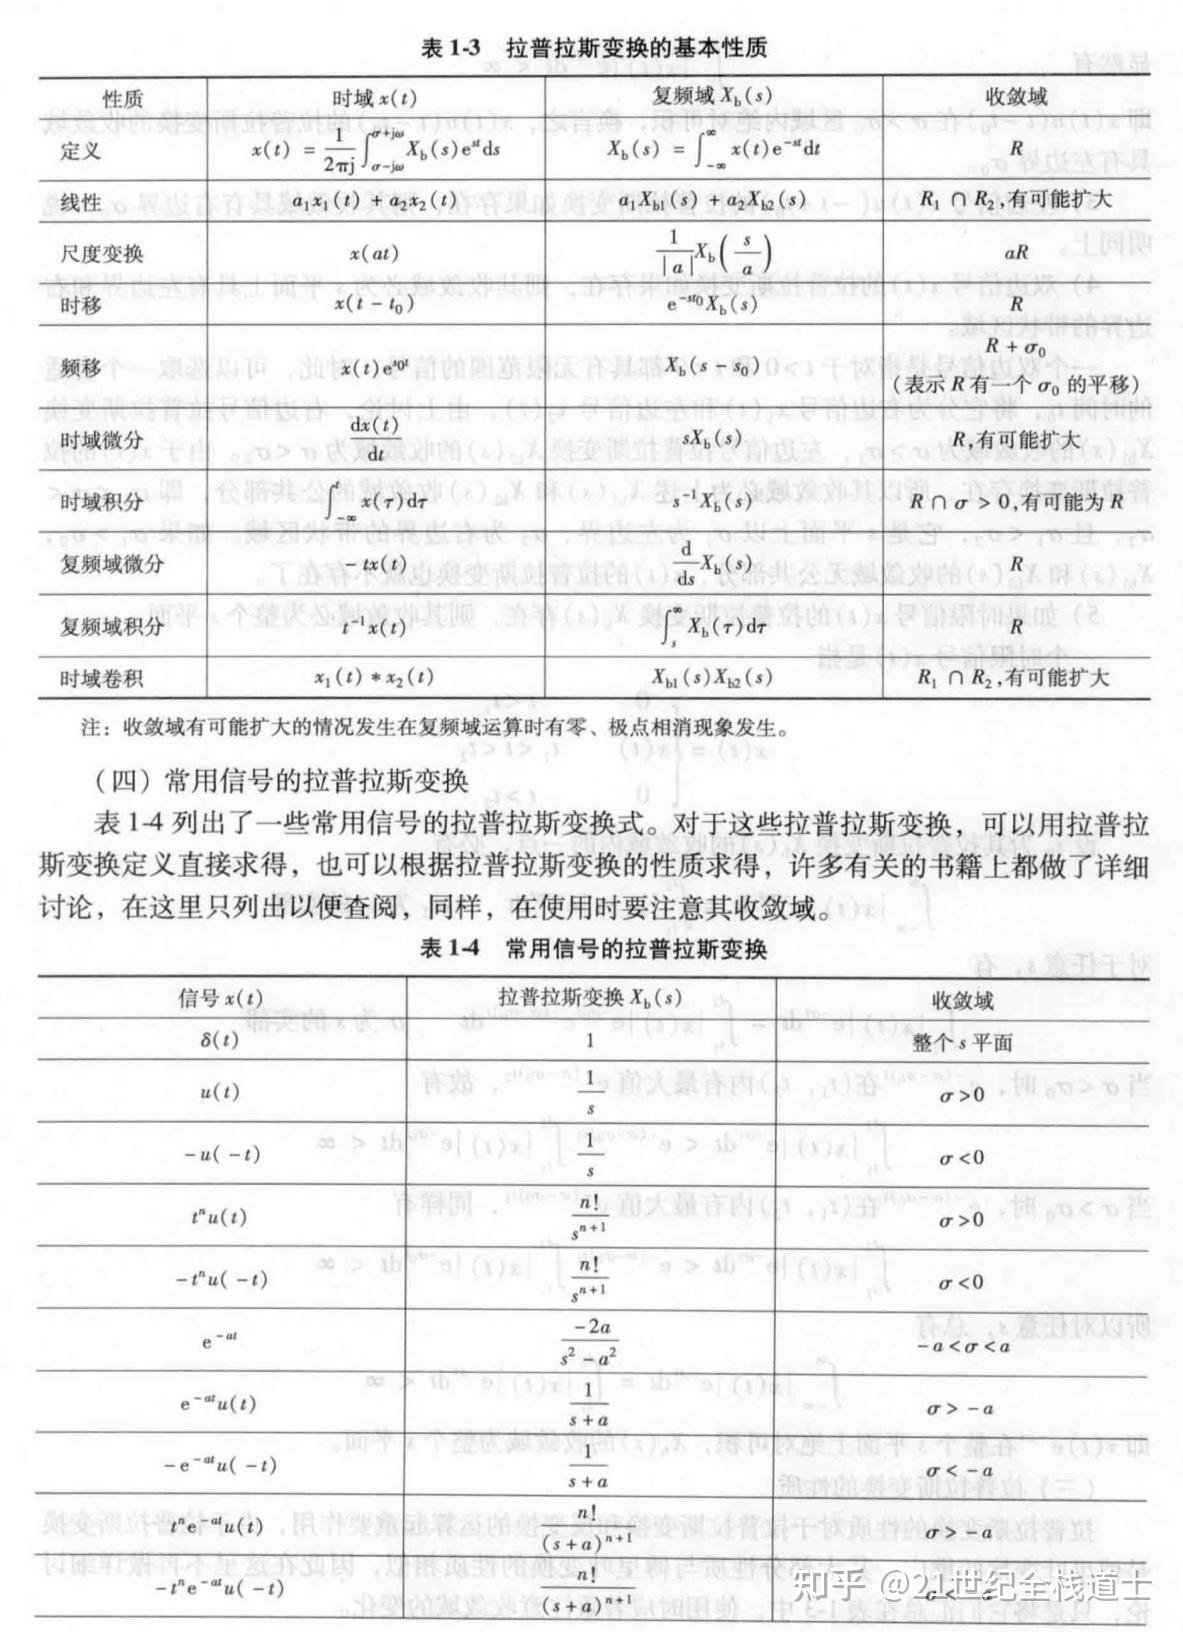 表 1-3 拉普拉斯变换的基本性质
性质 时域 x(t) 复频域 X_b(s) 收敛域
定义 x(t) = \frac{1}{2πj}∫_{σ-jω}^{σ+jω} X_b(s)e^{st}ds X_b(s) = ∫_{-∞}^{∞} x(t)e^{-st}dt R
线性 a_1x_1(t) + a_2x_2(t) a_1X_{b1}(s) + a_2X_{b2}(s) R_1 ∩ R_2,有可能扩大
尺度变换 x(at) \frac{1}{|a|}X_b(\frac{s}{a}) aR
时移 x(t - t_0) e^{-st_0}X_b(s) R
频移 x(t)e^{s_0t} X_b(s - s_0) R + σ_0
(表示 R 有一个 σ_0 的平移)
时域微分 \frac{dx(t)}{dt} sX_b(s) R,有可能扩大
时域积分 ∫_{-∞}^{t} x(τ)dτ s^{-1}X_b(s) R ∩ σ > 0,有可能为 R
复频域微分 - tx(t) \frac{d}{ds}X_b(s) R
复频域积分 t^{-1}x(t) ∫_{s}^{∞} X_b(τ)dτ R
时域卷积 x_1(t) * x_2(t) X_{b1}(s)X_{b2}(s) R_1 ∩ R_2,有可能扩大
注：收敛域有可能扩大的情况发生在复频域运算时有零、极点相消现象发生。
（四）常用信号的拉普拉斯变换
表 1-4 列出了一些常用信号的拉普拉斯变换式。对于这些拉普拉斯变换，可以用拉普拉
斯变换定义直接求得，也可以根据拉普拉斯变换的性质求得，许多有关的书籍上都做了详细
讨论，在这里只列出以便查阅，同样，在使用时要注意其收敛域。
表 1-4 常用信号的拉普拉斯变换
信号 x(t) 拉普拉斯变换 X_b(s) 收敛域
δ(t) 1 整个 s 平面
u(t) \frac{1}{s} σ>0
-u(-t) \frac{1}{s} σ<0
t^n u(t) \frac{n!}{s^{n+1}} σ>0
-t^n u(-t) \frac{n!}{s^{n+1}} σ<0
e^{-at} \frac{-2a}{s^2-a^2} -a<σ<a
e^{-at}u(t) \frac{1}{s+a} σ>-a
-e^{-at}u(-t) \frac{1}{s+a} σ<-a
t^n e^{-at}u(t) \frac{n!}{(s+a)^{n+1}} σ>-a
-t^n e^{-at}u(-t) \frac{n!}{(s+a)^{n+1}}
知乎 @21世纪全栈道士